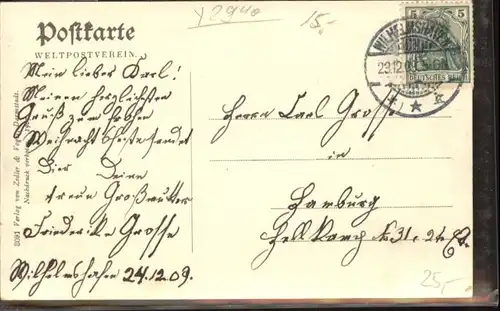 Y2940
15,-
Postkarte
WELTPOSTVEREIN.
5 5
WILHELMSHAVEN
23.12.09. 5-6N.
DEUTSCHES REICH
Mein lieber Carl!
Meinen herzlichsten
Gruß zum frohen
Weihnachtsfeste sendet
Dir Deine
treue Großmutter
Friederike Grosse
Wilhelmshafen 24.12.09.
Herrn Carl Grosse
in
Hamburg
Hellkamp No 31, 2t Et.
25,-
8091 Verlag von Zedler & Vogel, Darmstadt.
Nachdruck verboten